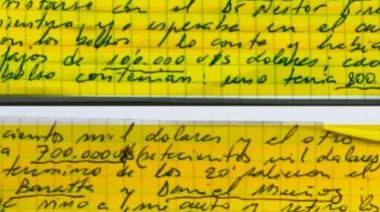 con el Dr Nestor
y yo esperaba en el
los bolsos / lo conto y habia
fajos de 100.000 U$S dolares; cada
bolso contenian: uno tenia 800.
ciento mil dolares y el otro
a 700.000U$ (setecientos mil dolares
termino de los 20' salieron el
Baratta y Daniel Muñoz;
vino a mi auto y retiro los